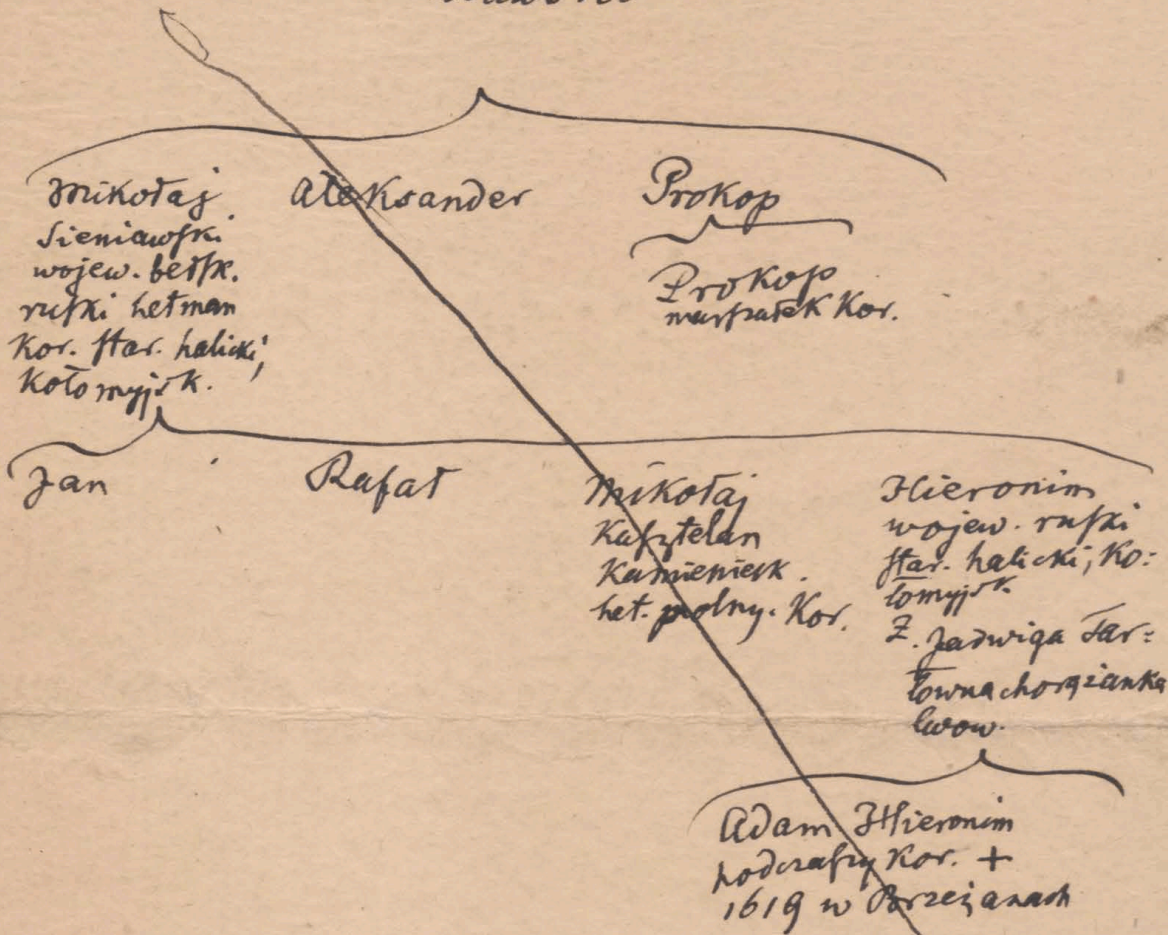 Mikołaj
Sieniawski
wojew. bełsk.
ruski hetman
Kor. star. halicki,
Kołomyjsk.
Aleksander
Prokop
Prokop
marszałek Kor.
Jan
Rafał
Mikołaj
Kasztelan
Kamienieck.
het. polny. Kor.
Hieronim
wojew. ruski
star. halicki, Ko:
łomyjsk.
Ż. Jadwiga Tar:
łowna chorążanka
lwow.
Adam Hieronim
podczaszy Kor. +
1619 w Brzeżanach